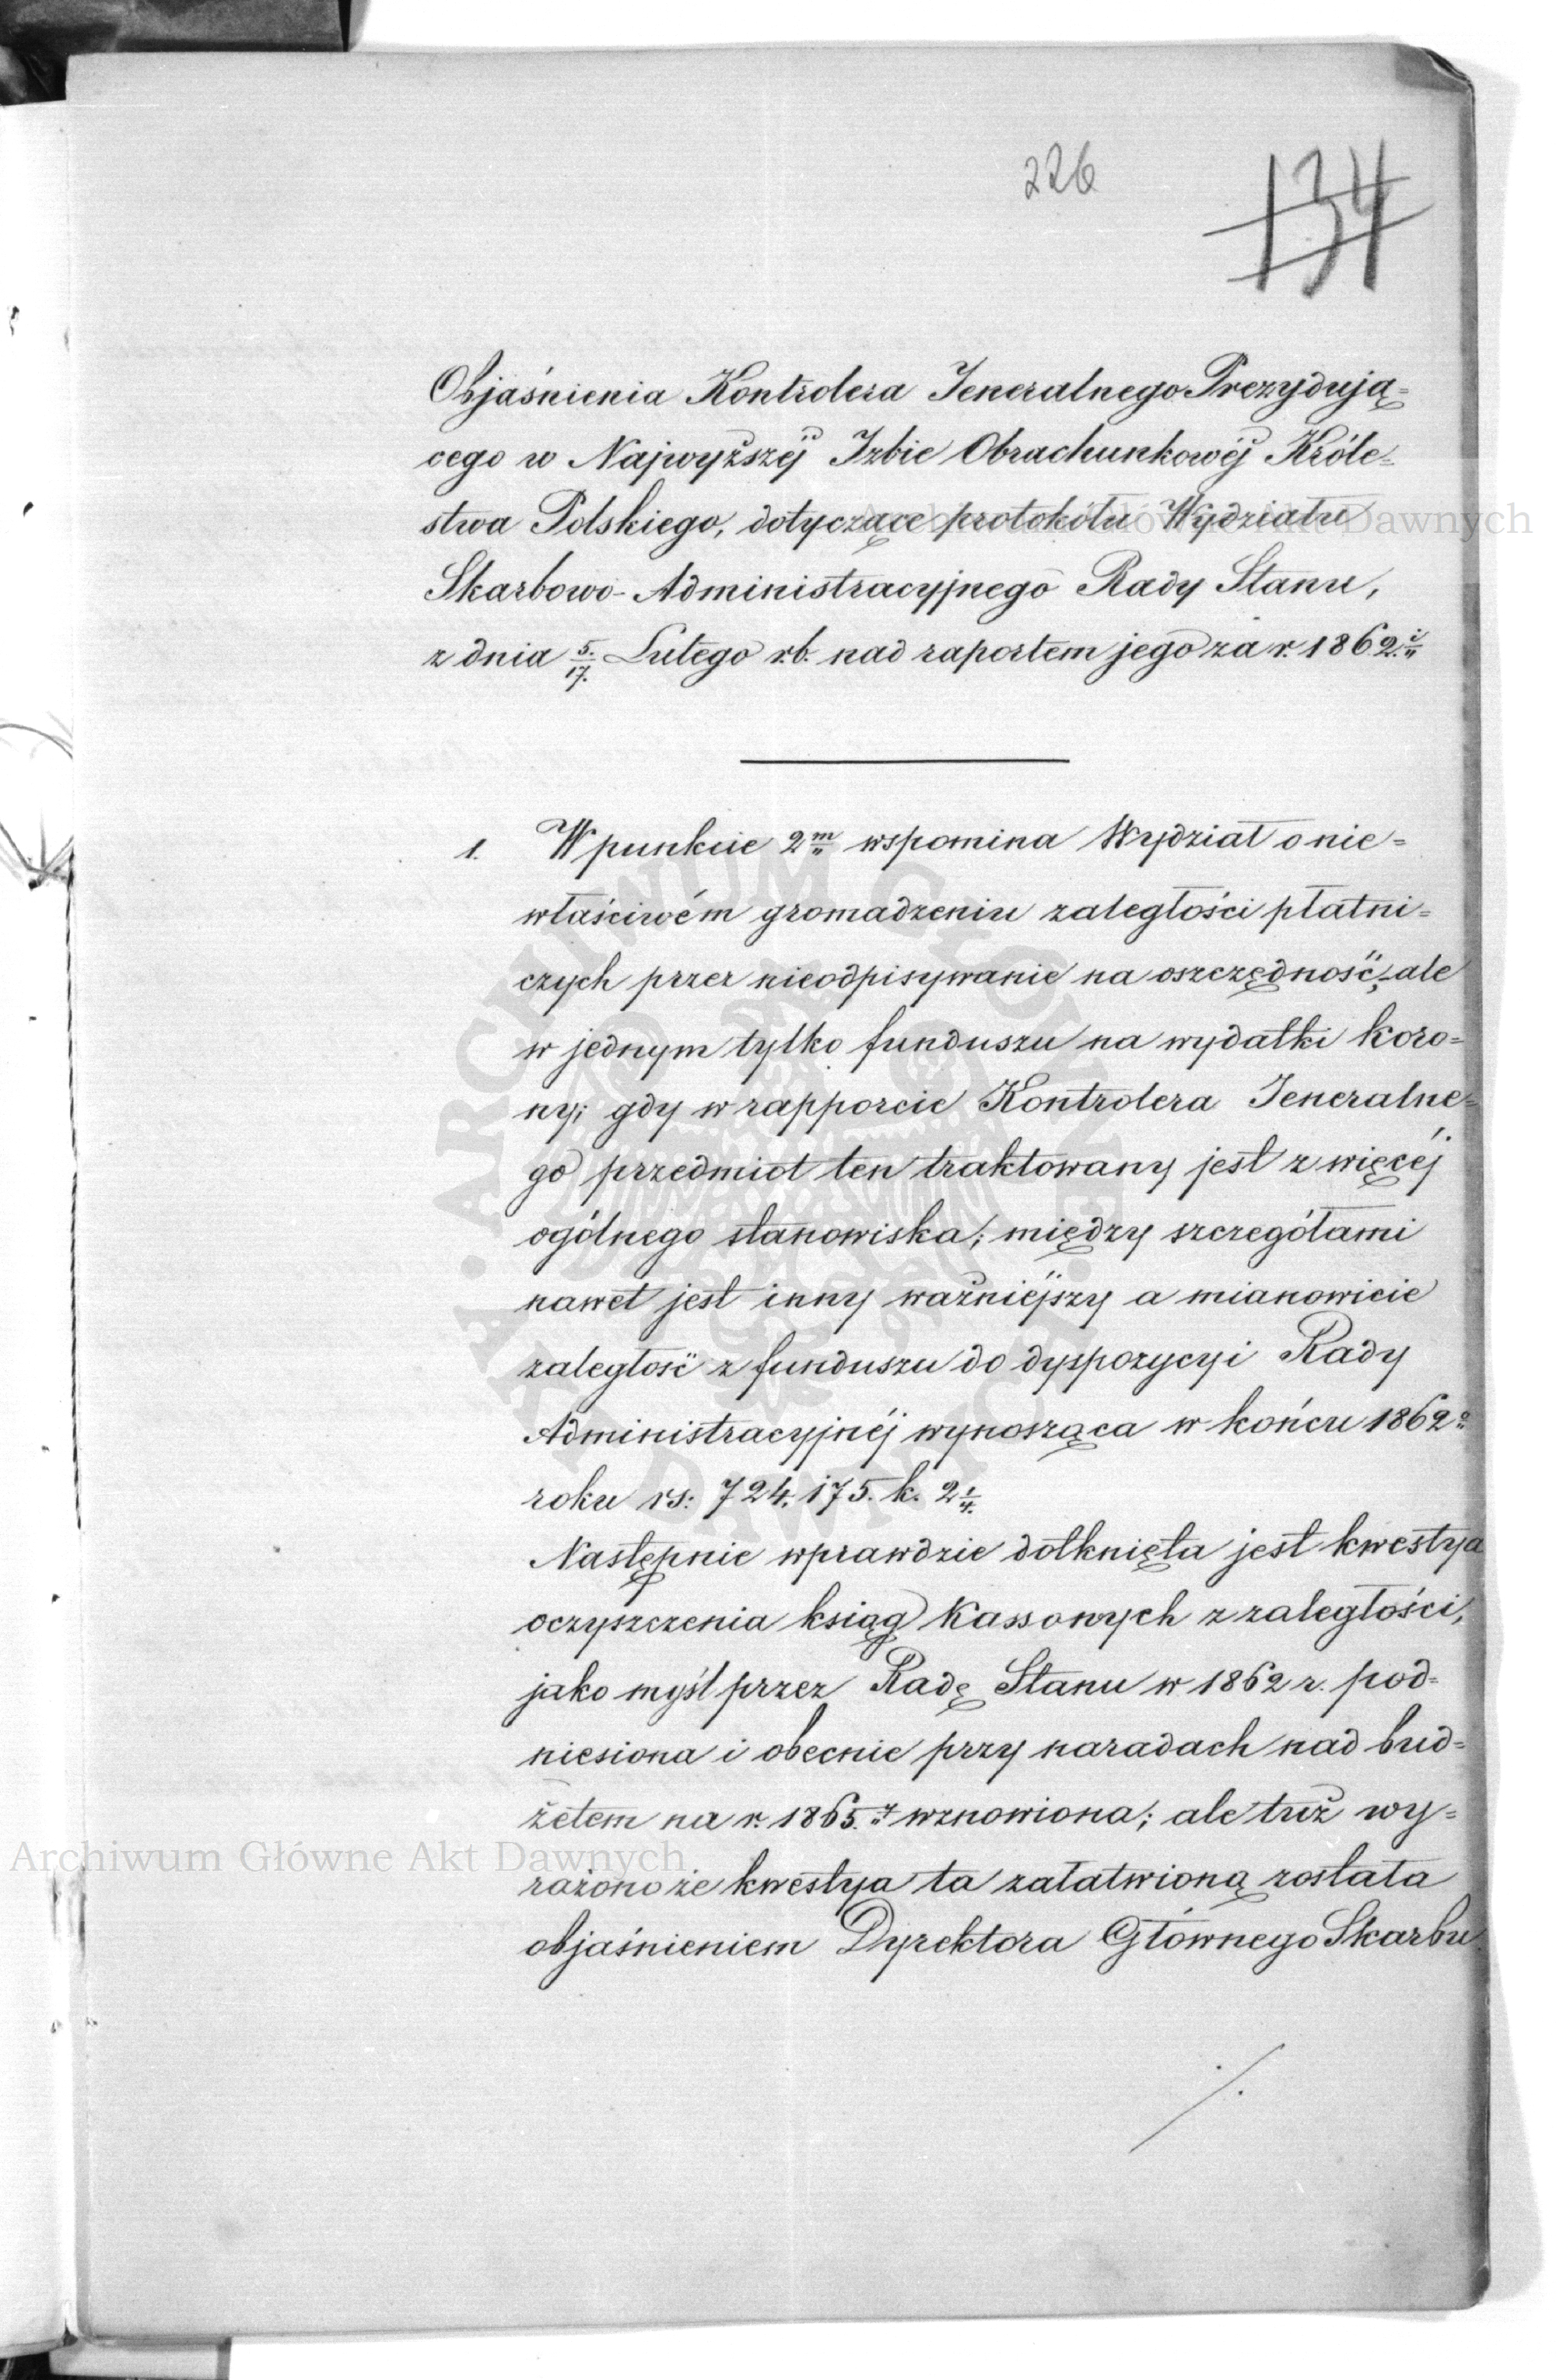 226
134
Objaśnienia Kontrolera Jeneralnego Prezydują=
cego w Najwyższéj Izbie Obrachunkowéj Króle=
stwa Polskiego, dotyczące protokółu Wydziału
Skarbowo-Administracyjnego Rady Stanu,
z dnia 5/17. Lutego r.b. nad raportem jego za r. 1862.
1. W punkcie 2m wspomina Wydział o nie=
właściwém gromadzeniu zaległości płatni=
czych przez nieodpisywanie na oszczędność, ale
w jednym tylko funduszu na wydatki koro=
ny; gdy w rapporcie Kontrolera Jeneralne=
go przedmiot ten traktowany jest z więcéj
ogólnego stanowiska; między szczegółami
nawet jest inny ważniéjszy a mianowicie
zaległość z funduszu do dyspozycyi Rady
Administracyjnéj wynosząca w końcu 1862o
roku rs: 724.175. k. 2 1/4.
Następnie wprawdzie dotknięta jest kwestya
oczyszczenia ksiąg Kassowych z zaległości,
jako myśl przez Radę Stanu w 1862 r. pod=
niesiona i obecnie przy naradach nad bud=
żetem na r. 1865. wznowiona; ale tuż wy=
rażono że kwestya ta załatwioną została
objaśnieniem Dyrektora Głównego Skarbu
./.
Archiwum Główne Akt Dawnych
Archiwum Główne Akt Dawnych
ARCHIWUM GŁÓWNE AKT DAWNYCH